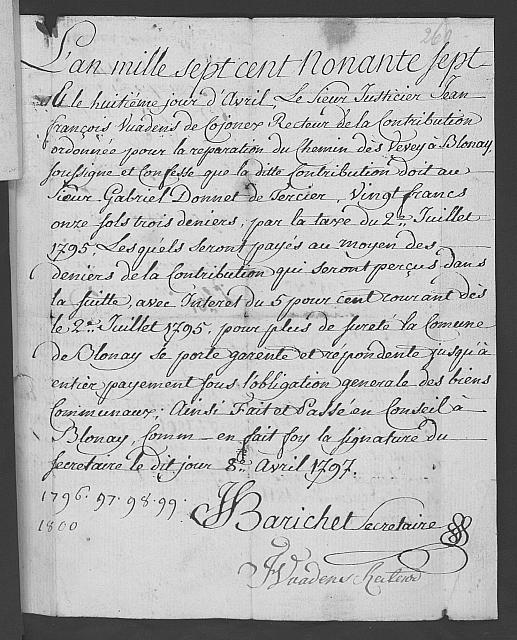 269
L'an mille sept cent Nonante sept
& le huitiême jour d'Avril, Le Sieur Justicier Jean
françois Vuadens de Cojonex Recteur de la Contribution
ordonnée pour la reparation du Chemin dès Vevey à Blonay,
soussigné et Confesse que la ditte Contribution doit au
Sieur Gabriel Donnet de Tercier, Vingt francs
onze sols trois deniers, par la taxe du 2e Juillet
1795. Lesquels seront payés au moyen des
deniers de la Contribution qui seront perçus dans
la suitte, avec Interet du 5 pour cent courant dès
le 2e Juillet 1795, pour plus de sureté la Comune
de Blonay se porte garente et répondente jusqu'à
entier payement sous l'obligation generale des biens
Communaux; Ainsi Fait et Passé en Conseil à
Blonay, Comm en fait foy la signature du
secretaire le dit jour 8e Avril 1797.
1796. 97. 98. 99.
1800
Barichet Secretaire
JF Vuadens Recteur